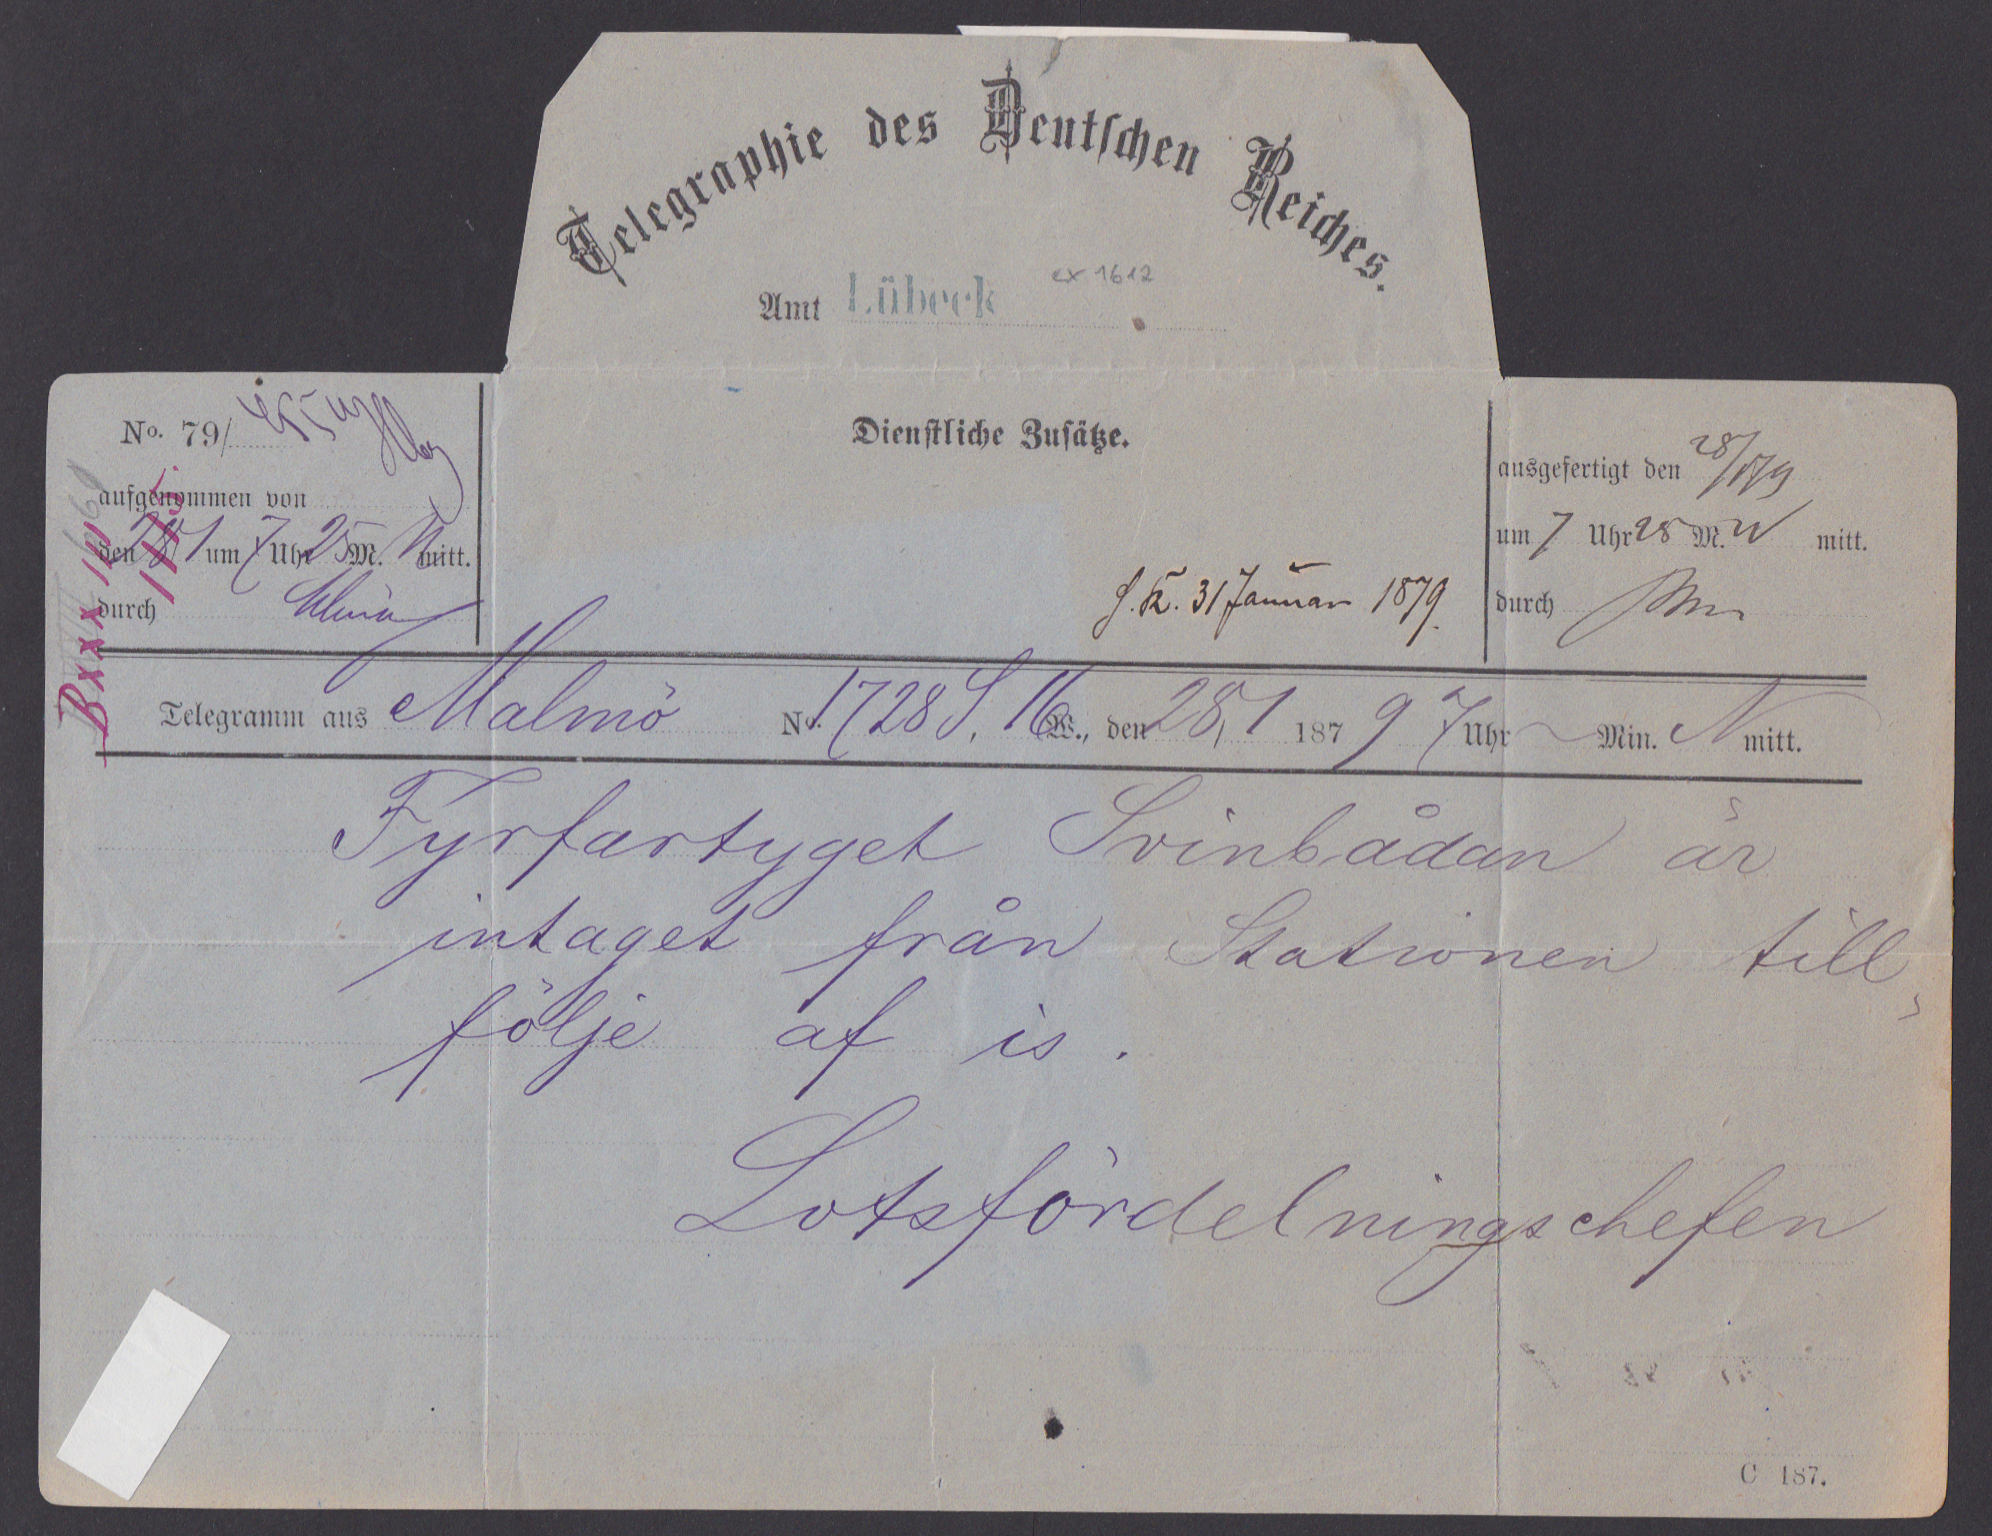 Telegraphie des Deutschen Reiches.
Amt Lübeck ex 1612
No. 79/
Dienstliche Zusätze.
aufgenommen von
den 28/1 um 7 Uhr 25 M. N mitt.
durch
ausgefertigt den 28/1 79
um 7 Uhr 28 M. N mitt.
durch
31 Januar 1879.
Telegramm aus Malmö No. 1728 S. 16 W., den 28/1 1879 7 Uhr — Min. N mitt.
Fyrfartyget Svinbådan är
intaget från Stationen till
följe af is.
Lotsfördelningschefen
C 187.